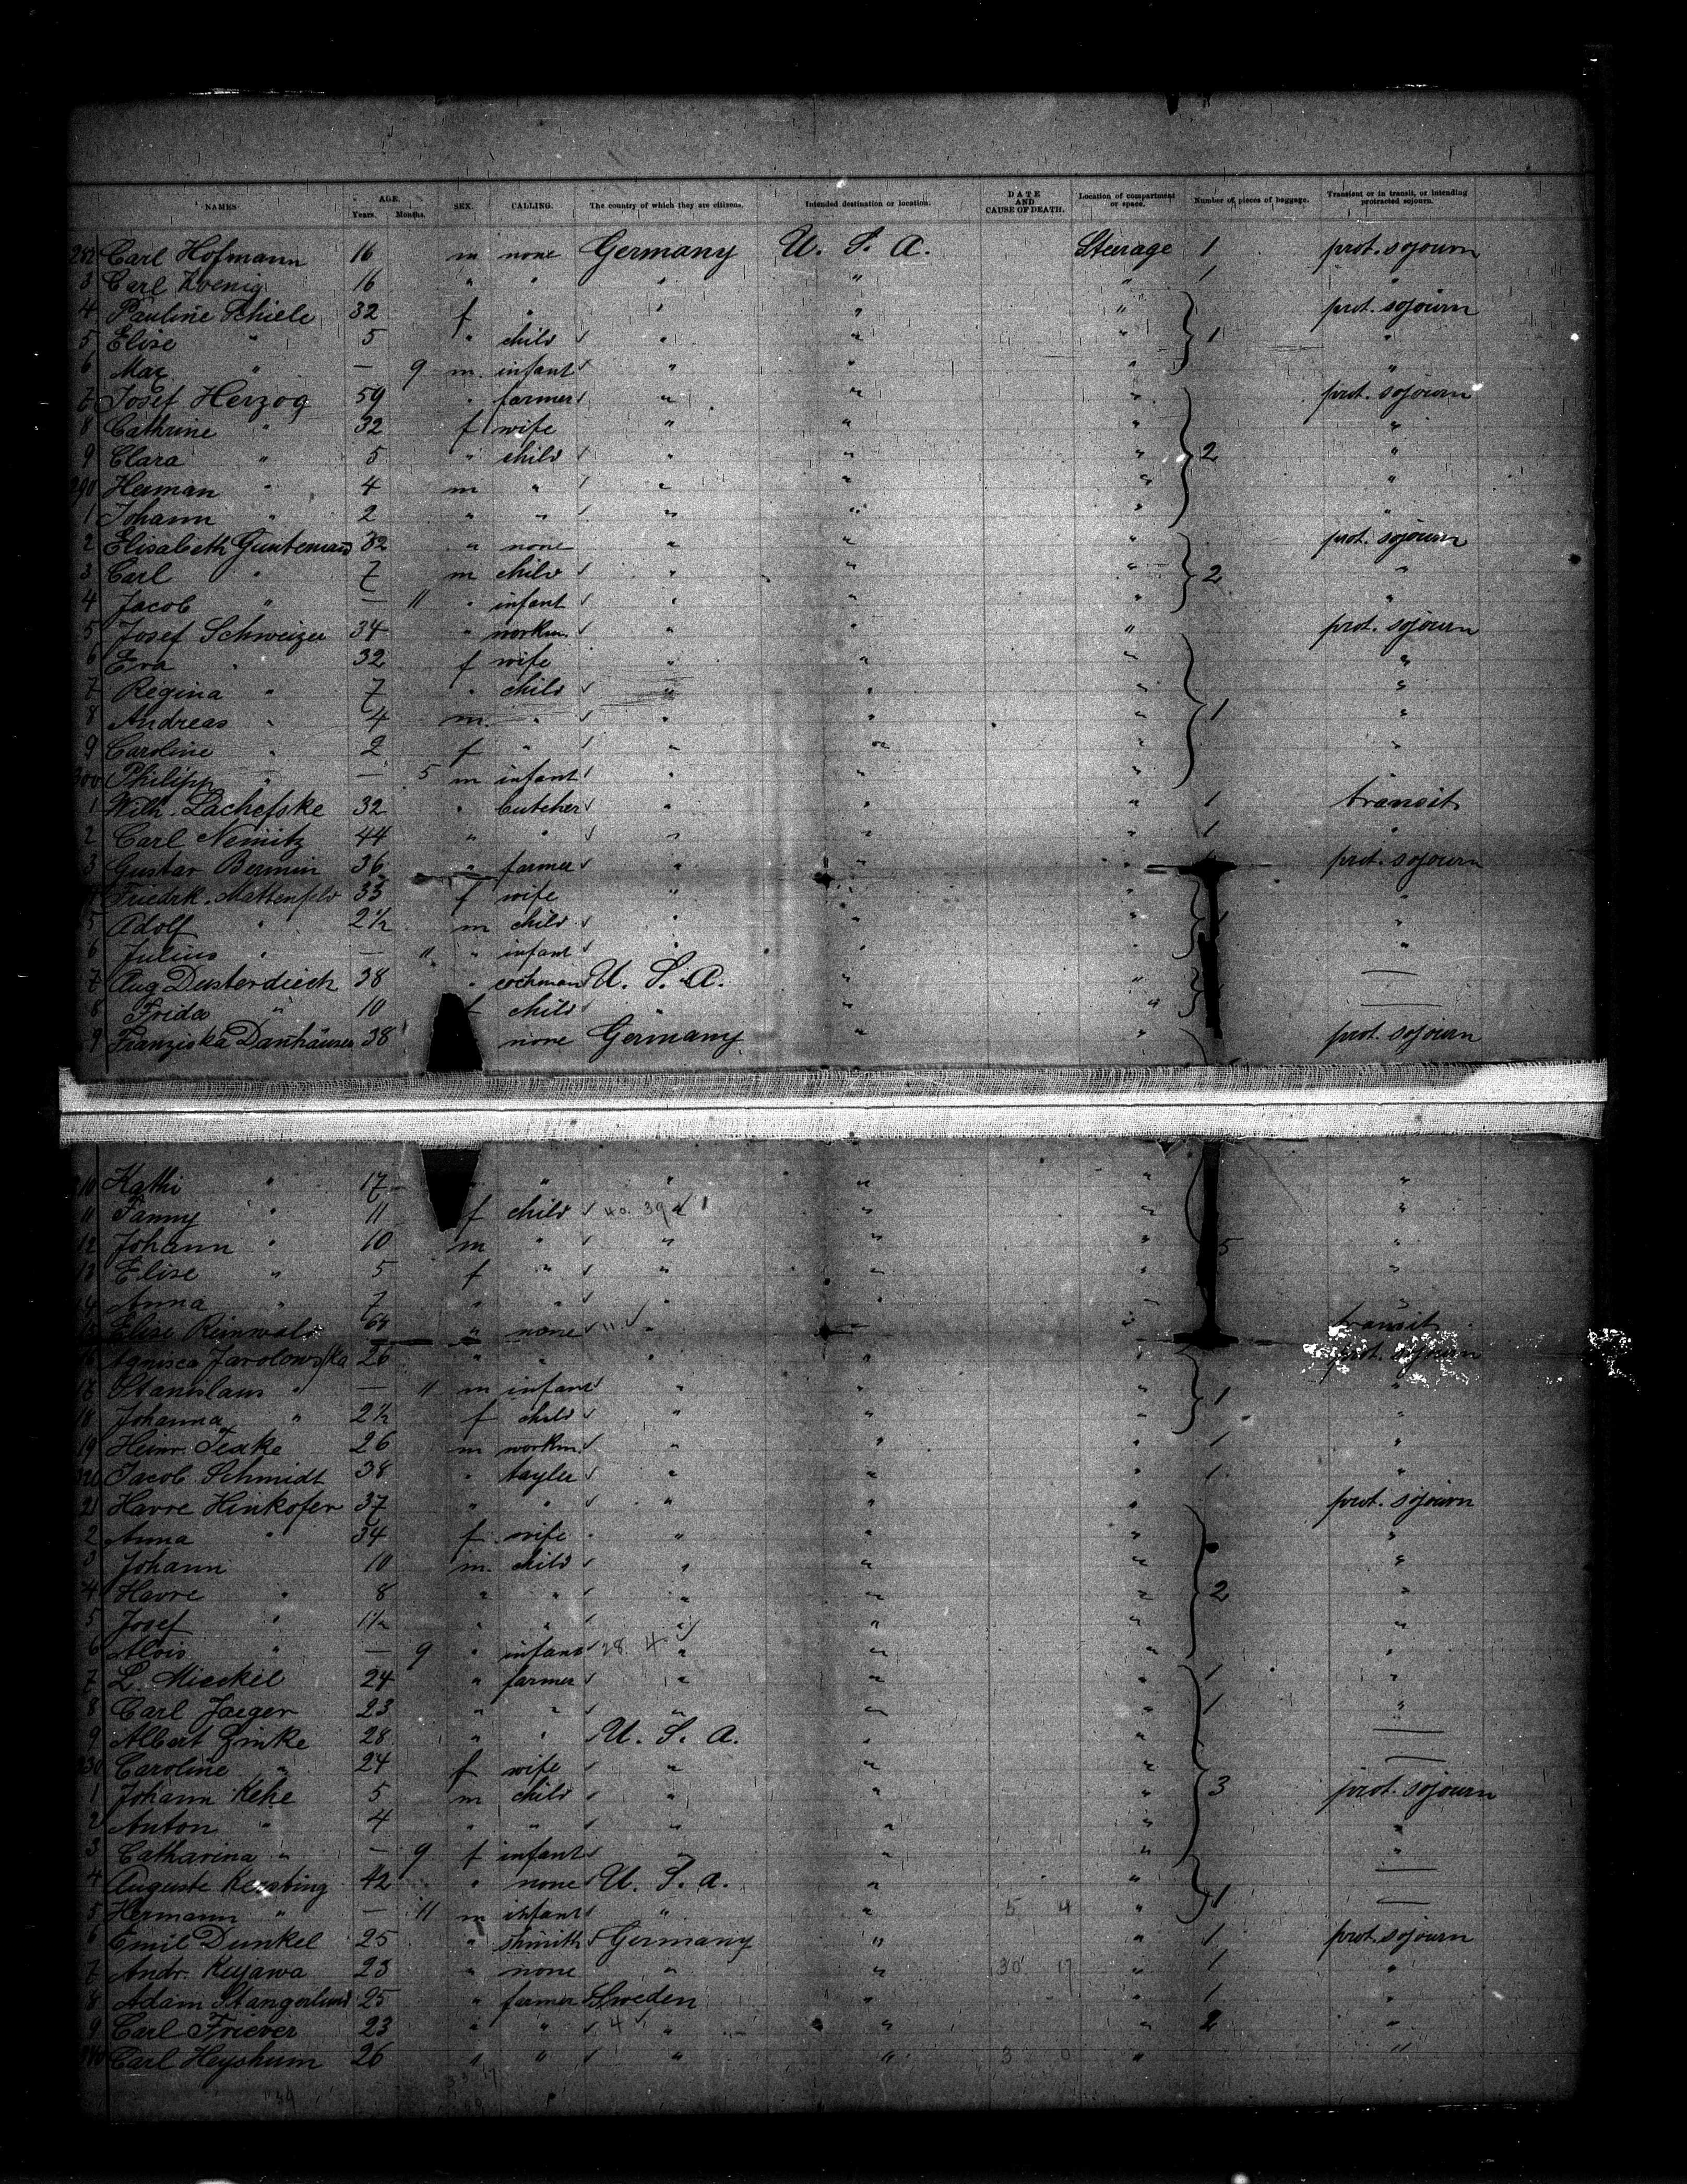 NAMES AGE. Years. Months. SEX. CALLING. The country of which they are citizens. Intended destination or location. DATE AND CAUSE OF DEATH. Location of compartment or space. Number of pieces of baggage. Transient or in transit, or intending protracted sojourn.
282 Carl Hofmann 16 m none Germany U. S. A. Steerage 1 prot. sojourn
3 Carl Koenig 16 " " " " " 1 "
4 Pauline Schiele 32 f " " " " prot. sojourn
5 Elise " 5 " child " " " 1 "
6 Max " — 9 m. infant " " " "
7 Josef Herzog 59 " farmer " " " prot. sojourn
8 Cathrine " 32 f wife " " " "
9 Clara " 5 " child " " " 2 "
290 Herman " 4 m " " " " "
1 Johann " 2 " " " " " "
2 Elisabeth 32 " none " " " prot. sojourn
3 Carl " 7 m child " " " 2 "
4 Jacob " — 11 " infant " " " "
5 Josef Schweizer 34 " workm. " " " prot. sojourn
6 Eva " 32 f wife " " " "
7 Regina " 7 " child " " " "
8 Andreas " 4 m. " " " " 1 "
9 Caroline " 2 f " " " " "
300 Philipp " — 5 m infant " " " "
1 Wilh. Lachefske 32 " butcher " " " 1 transit
2 Carl Nemitz 44 " " " " " 1 "
3 Gustav Bermin 36 " farmer " " " prot. sojourn
Friedrk. Mattenfeld 35 f wife " " " "
5 Adolf " 2 1/2 m child " " " 1 "
6 Julius " — 11 " infant " " " "
7 Aug Dusterdieck 38 " cochman U. S. A. " " —
8 Frida " 10 f child " " " —
9 Franziska Danhäuser 38 none Germany " " prot. sojourn
310 Kathi " 17 " " " " "
11 Fanny " 11 f child " " " "
12 Johann " 10 m " " " " 5 "
13 Elise " 5 f " " " " "
14 Anna " 7 " " " " " "
15 Elise Reinwald 64 " none " " " transit
16 Agnisca Jarolowska 26 " " " " " prot. sojourn
17 Stanislaus " — 11 m infant " " " 1 "
18 Johanna " 2 1/2 f child " " " "
19 Heinr. Teake 26 m workm. " " " 1 "
320 Jacob Schmidt 38 " tayler " " " 1 "
21 Havre Hinkofer 37 " " " " " prot. sojourn
2 Anna " 34 f wife " " " "
3 Johann 10 m. child " " " "
4 Havre " 8 " " " " " 2 "
5 Josef " 1 1/2 " " " " " "
6 Alois " — 9 " infant " " " "
7 L. Mieckel 24 " farmer " " " 1 "
8 Carl Jaeger 23 " " " " " 1 "
9 Albert Ginke 28 " " U. S. A. " " —
330 Caroline " 24 f wife " " " —
1 Johann Kehe 5 m child " " " 3 prot. sojourn
2 Anton " 4 " " " " " "
3 Catharina " — 9 f infant " " " "
4 Auguste Kersting 42 " none U. S. A. " " —
5 Hermann " — 11 m infant " " 5 4 " 1 —
6 Emil Dunkel 25 " shmith Germany " " 1 prot. sojourn
7 Andr. Kujawa 23 " none " " 30 17 " 1 "
8 Adam Stangerlund 25 " farmer Sweden " " 1 "
9 Carl Friever 23 " " " " " 2 "
340 Carl Heyshum 26 " " " " 3 0 " "